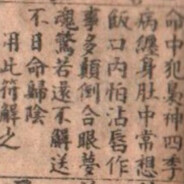 命中犯昊神四季
病纏身肚中常想
飯口內怕沾唇作
事多顛倒合眼夢
魂驚若還不解送
不日命歸陰
用此符解之